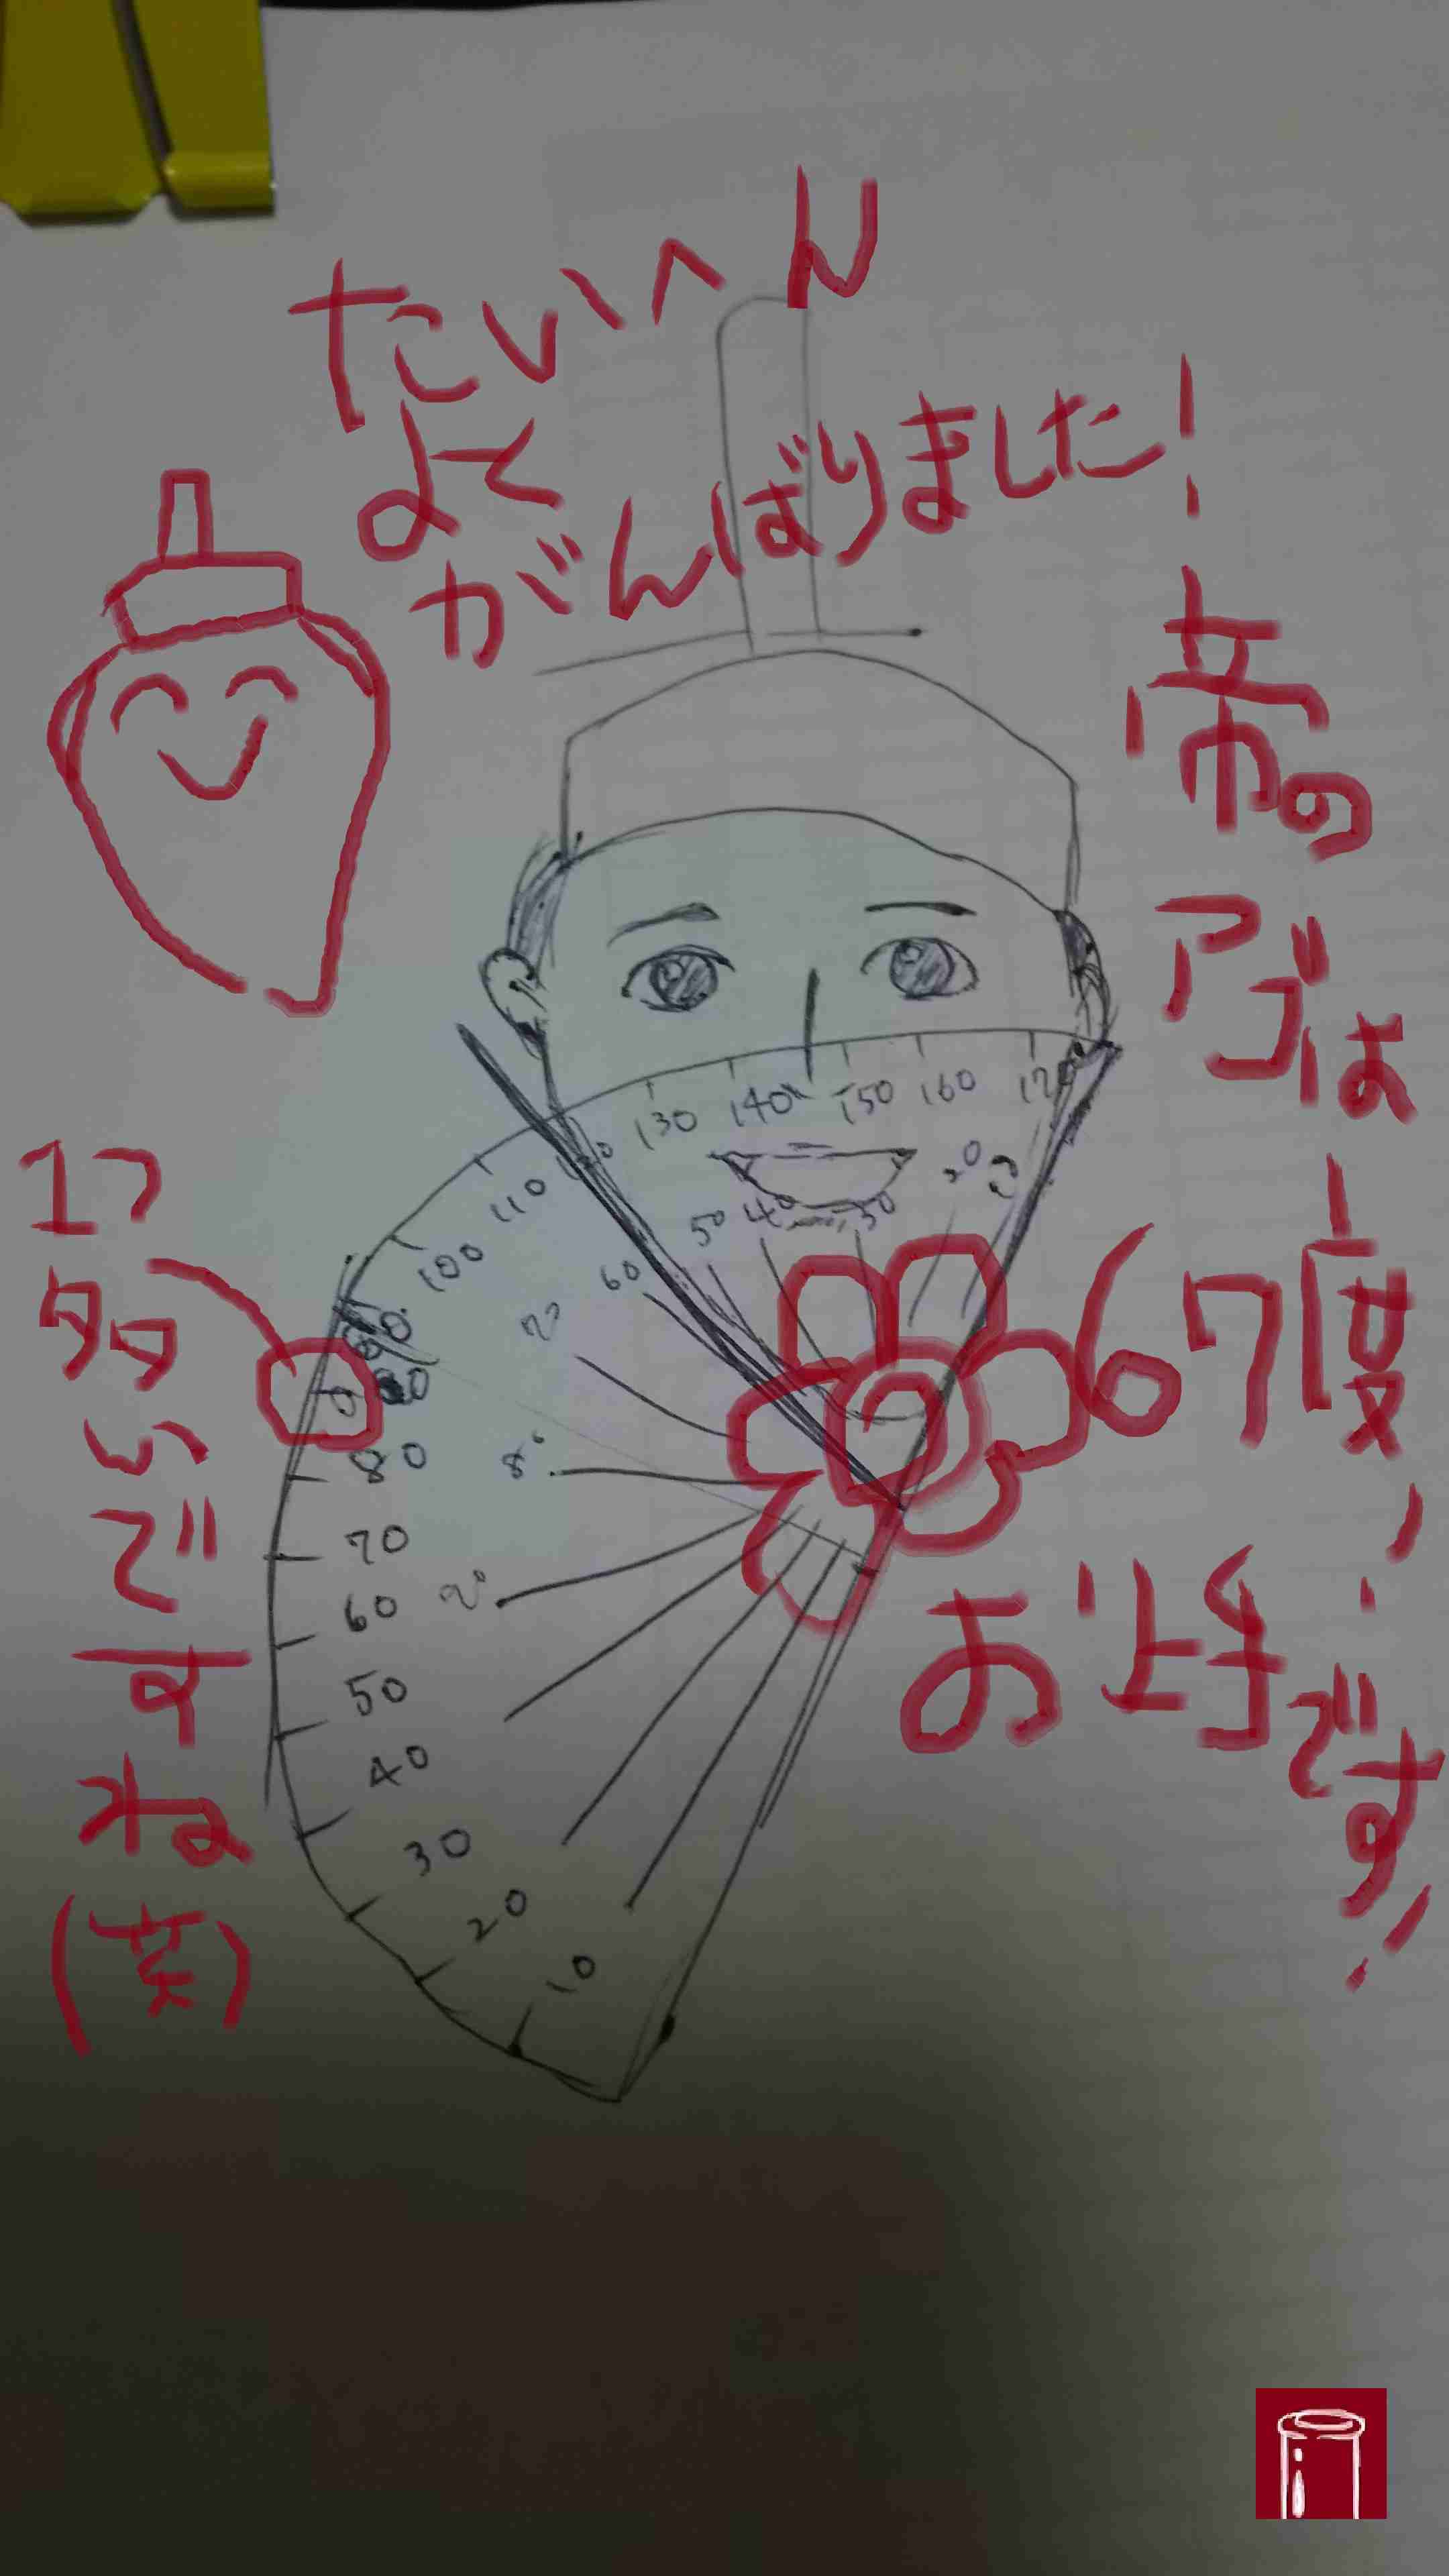 たいへん
よく
がんばりました!
帝の
アゴは
67度!
お上手です!
1つ
多い
ですね
(笑)
130 140 150 160 170
110
100
80
70
60
50
40
30
20
10
60 50 40 30 20